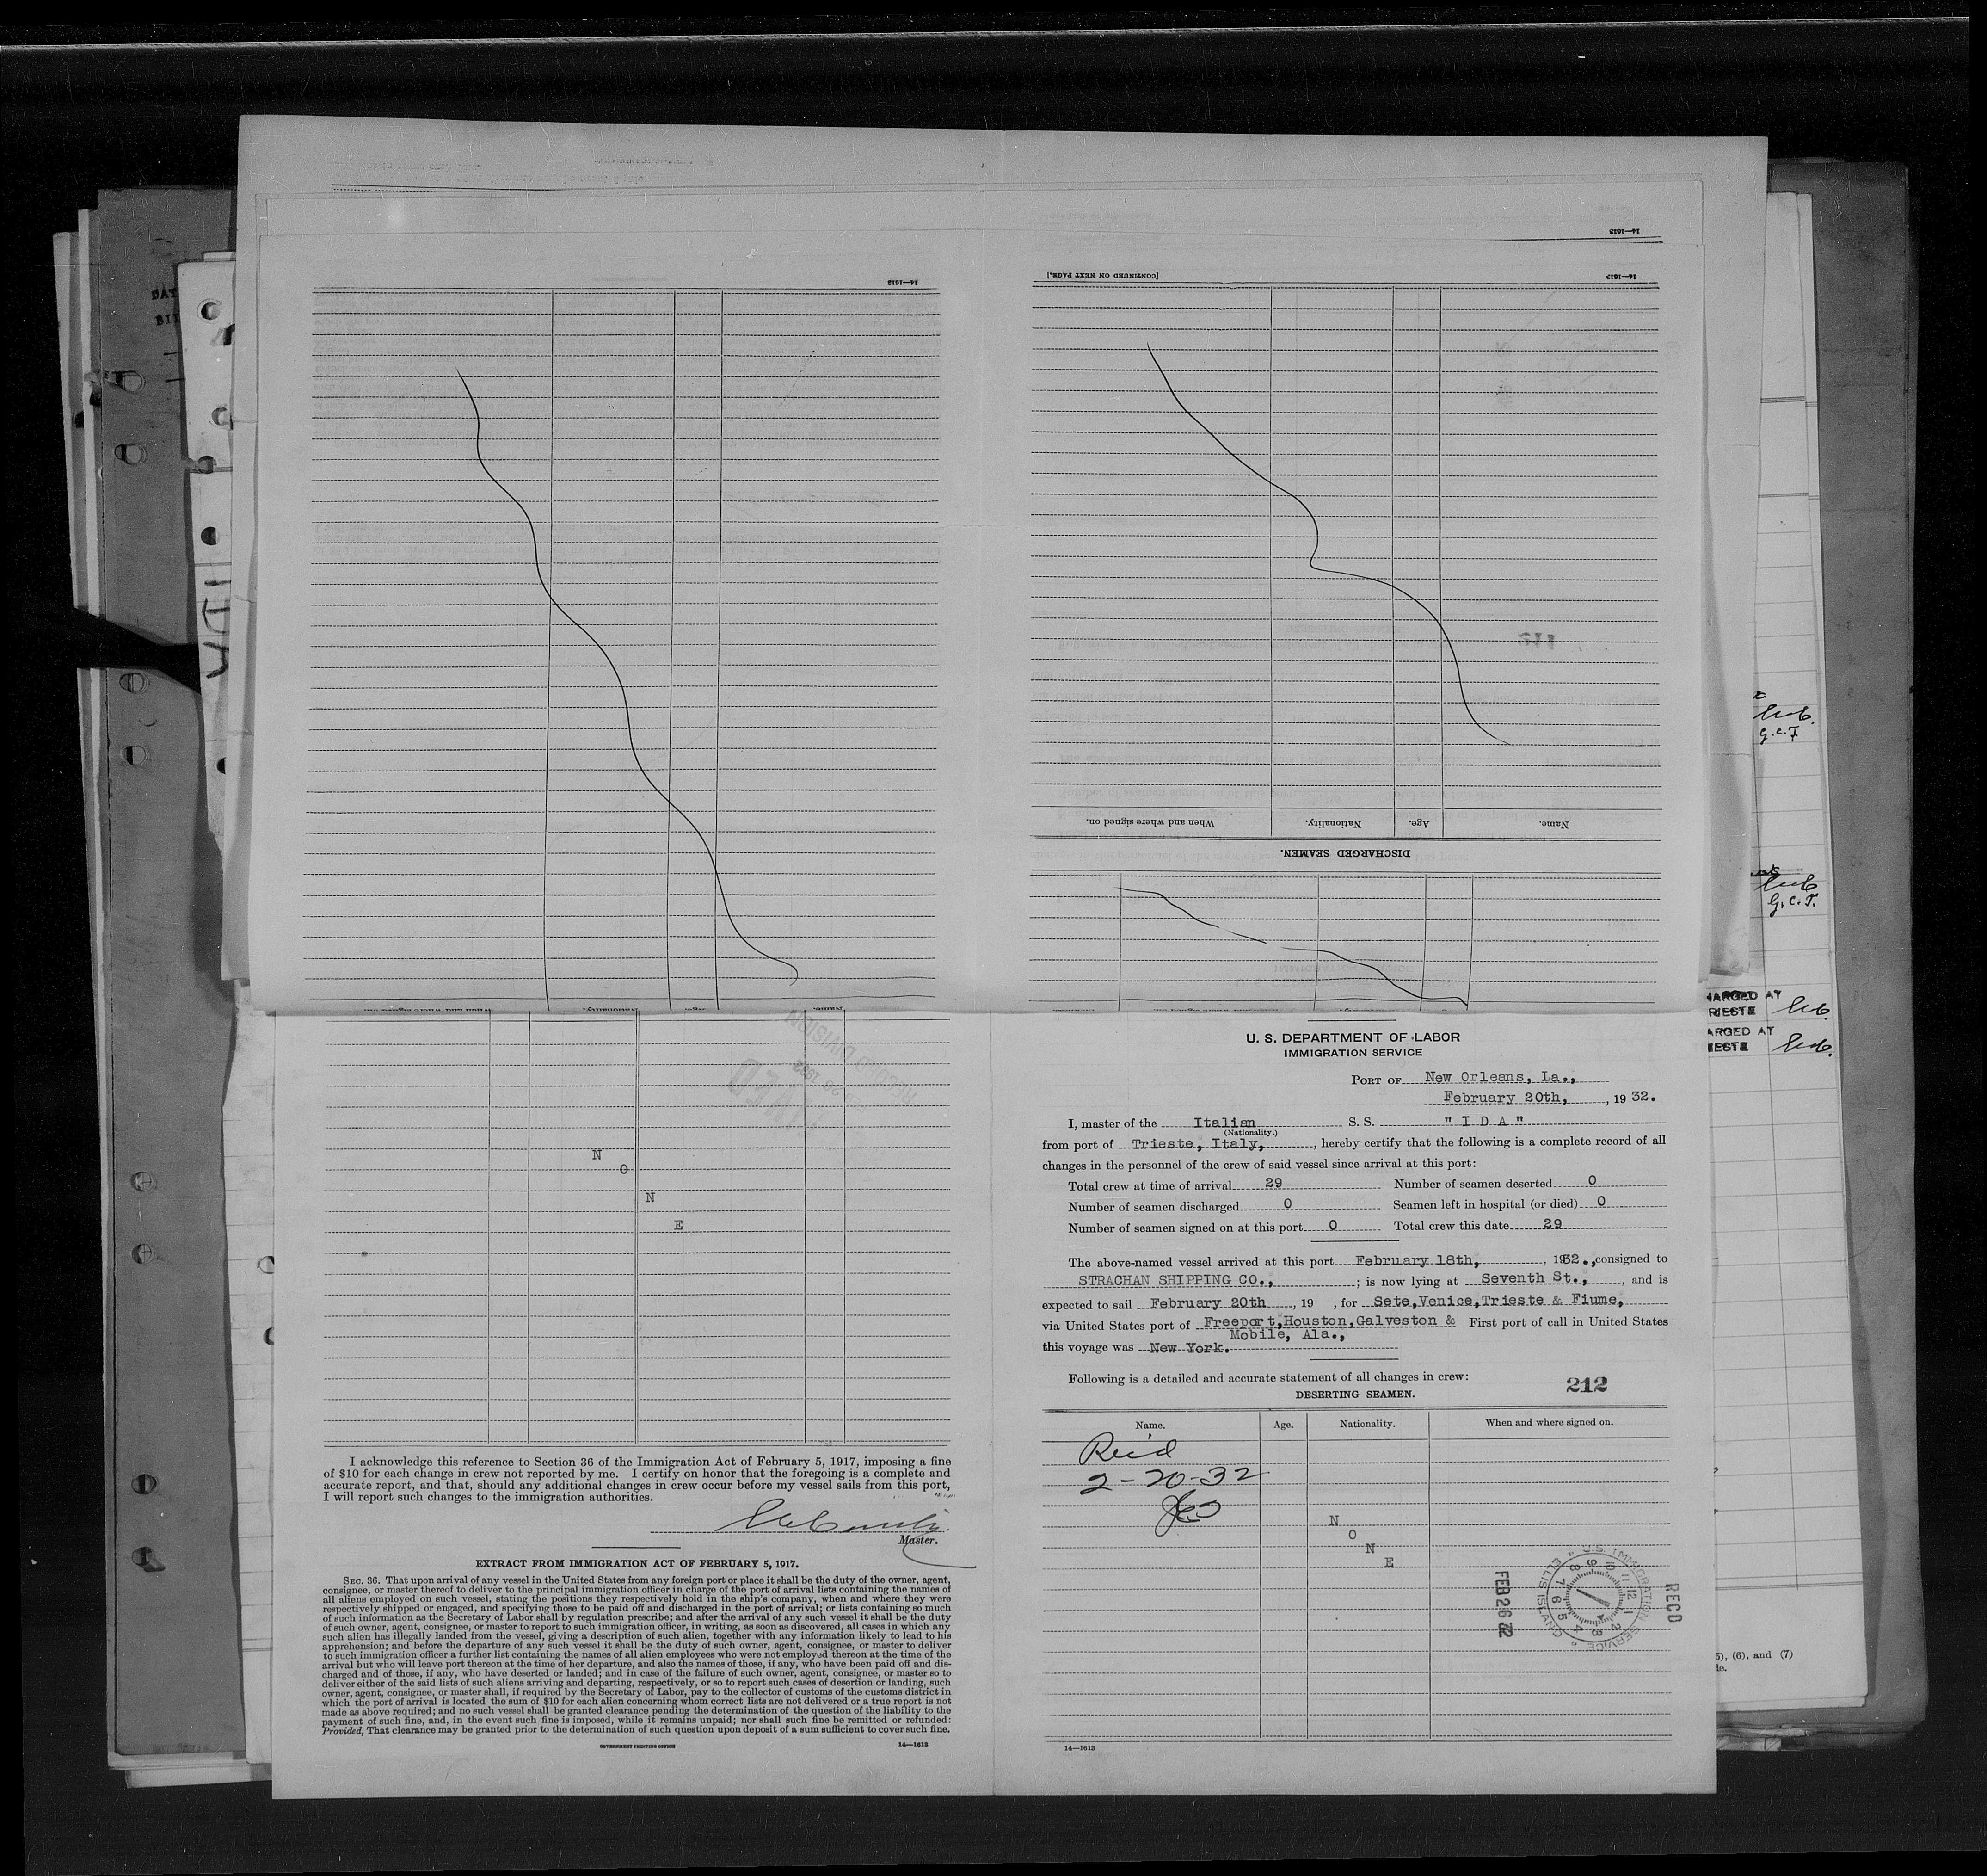 14—1613
[CONTINUED ON NEXT PAGE.]
14—1613
14—1613
When and where signed on.
Nationality.
Age.
Name.
DISCHARGED SEAMEN.
IDA
G.C.T.
G.C.T.
ARGED AT
RIESTE
ARGED AT
IESTE
5), (6), and (7)
N
O
N
E
I acknowledge this reference to Section 36 of the Immigration Act of February 5, 1917, imposing a fine
of $10 for each change in crew not reported by me. I certify on honor that the foregoing is a complete and
accurate report, and that, should any additional changes in crew occur before my vessel sails from this port,
I will report such changes to the immigration authorities.
Master.
EXTRACT FROM IMMIGRATION ACT OF FEBRUARY 5, 1917.
SEC. 36. That upon arrival of any vessel in the United States from any foreign port or place it shall be the duty of the owner, agent,
consignee, or master thereof to deliver to the principal immigration officer in charge of the port of arrival lists containing the names of
all aliens employed on such vessel, stating the positions they respectively hold in the ship's company, when and where they were
respectively shipped or engaged, and specifying those to be paid off and discharged in the port of arrival; or lists containing so much
of such information as the Secretary of Labor shall by regulation prescribe; and after the arrival of any such vessel it shall be the duty
of such owner, agent, consignee, or master to report to such immigration officer, in writing, as soon as discovered, all cases in which any
such alien has illegally landed from the vessel, giving a description of such alien, together with any information likely to lead to his
apprehension; and before the departure of any such vessel it shall be the duty of such owner, agent, consignee, or master to deliver
to such immigration officer a further list containing the names of all alien employees who were not employed thereon at the time of the
arrival but who will leave port thereon at the time of her departure, and also the names of those, if any, who have been paid off and dis-
charged and of those, if any, who have deserted or landed; and in case of the failure of such owner, agent, consignee, or master so to
deliver either of the said lists of such aliens arriving and departing, respectively, or so to report such cases of desertion or landing, such
owner, agent, consignee, or master shall, if required by the Secretary of Labor, pay to the collector of customs of the customs district in
which the port of arrival is located the sum of $10 for each alien concerning whom correct lists are not delivered or a true report is not
made as above required; and no such vessel shall be granted clearance pending the determination of the question of the liability to the
payment of such fine, and, in the event such fine is imposed, while it remains unpaid; nor shall such fine be remitted or refunded:
Provided, That clearance may be granted prior to the determination of such question upon deposit of a sum sufficient to cover such fine.
GOVERNMENT PRINTING OFFICE
14—1613
U. S. DEPARTMENT OF LABOR
IMMIGRATION SERVICE
PORT OF New Orleans, La.,
February 20th, , 1932.
I, master of the Italian S. S. " I D A "
(Nationality.)
from port of Trieste, Italy, , hereby certify that the following is a complete record of all
changes in the personnel of the crew of said vessel since arrival at this port:
Total crew at time of arrival 29 Number of seamen deserted 0
Number of seamen discharged 0 Seamen left in hospital (or died) 0
Number of seamen signed on at this port 0 Total crew this date 29
The above-named vessel arrived at this port February 18th, , 1932., consigned to
STRACHAN SHIPPING CO., ; is now lying at Seventh St., , and is
expected to sail February 20th , 19 , for Sete,Venice,Trieste & Fiume,
via United States port of Freeport,Houston,Galveston & First port of call in United States
Mobile, Ala.,
this voyage was New York.
Following is a detailed and accurate statement of all changes in crew:
212
DESERTING SEAMEN.
Name. Age. Nationality. When and where signed on.
Rec'd
2-20-32
N
O
N
E
RECD
U.S. IMMIGRATION SERVICE
ELLIS ISLAND
FEB 26
14—1613